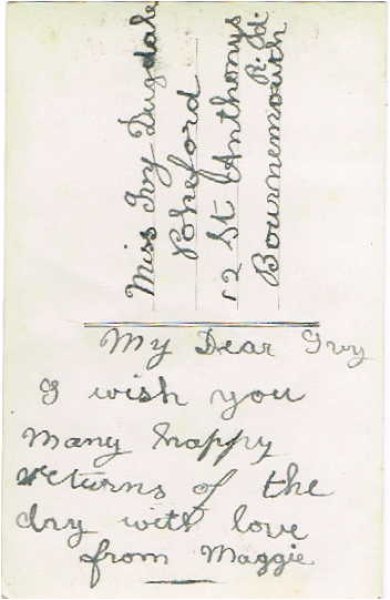 Miss Ivy Dugdale
12 St Anthonys
Rd.
Bournemouth
My Dear Ivy
I wish you
many happy
returns of the
day with love
from Maggie